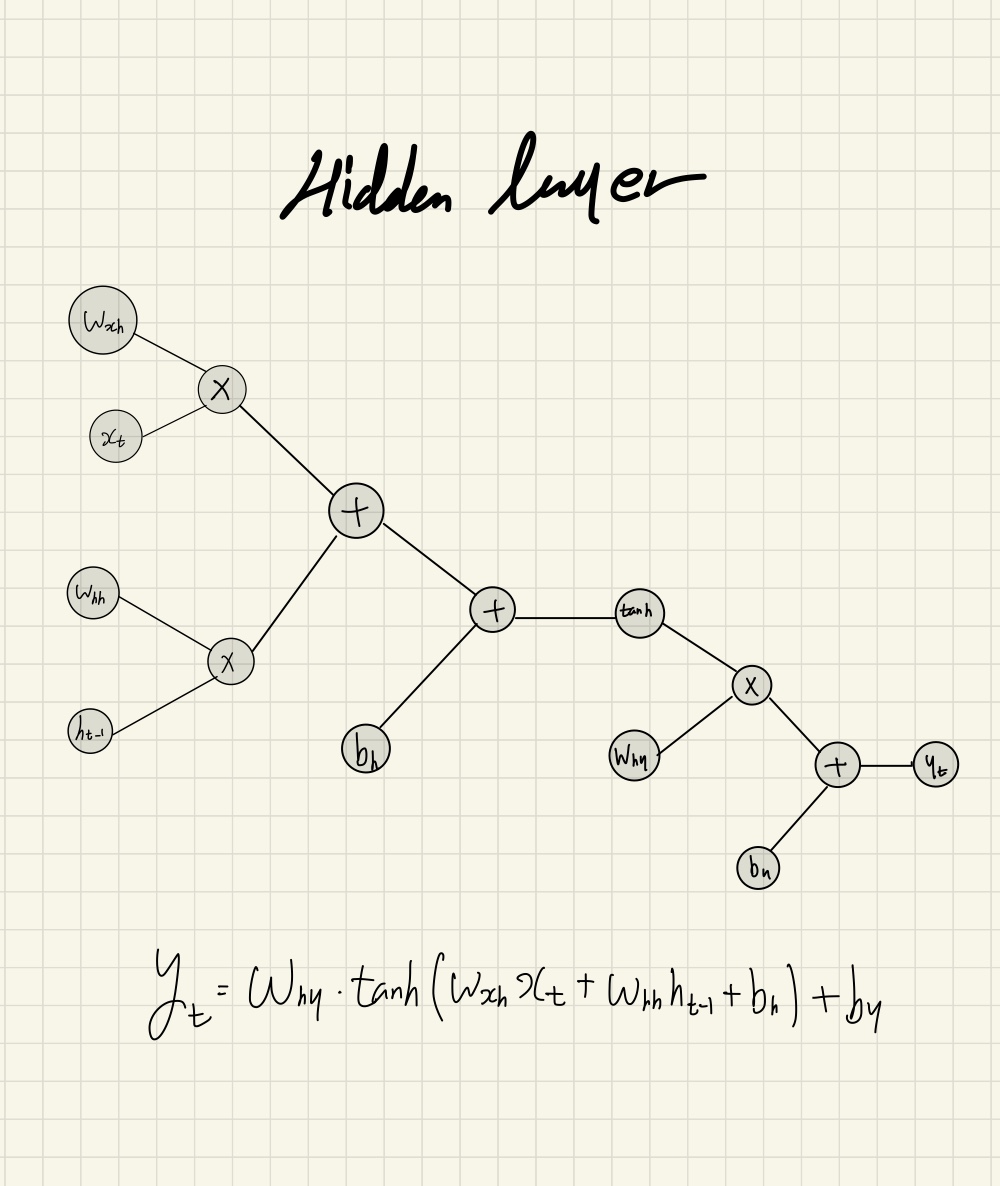 Hidden layer
W_xh
x
x_t
+
W_hh
+
tanh
x
x
h_t-1
b_h
W_hy
+
y_t
b_n
y_t = W_hy · tanh (W_xh x_t + W_hh h_t-1 + b_h) + b_y